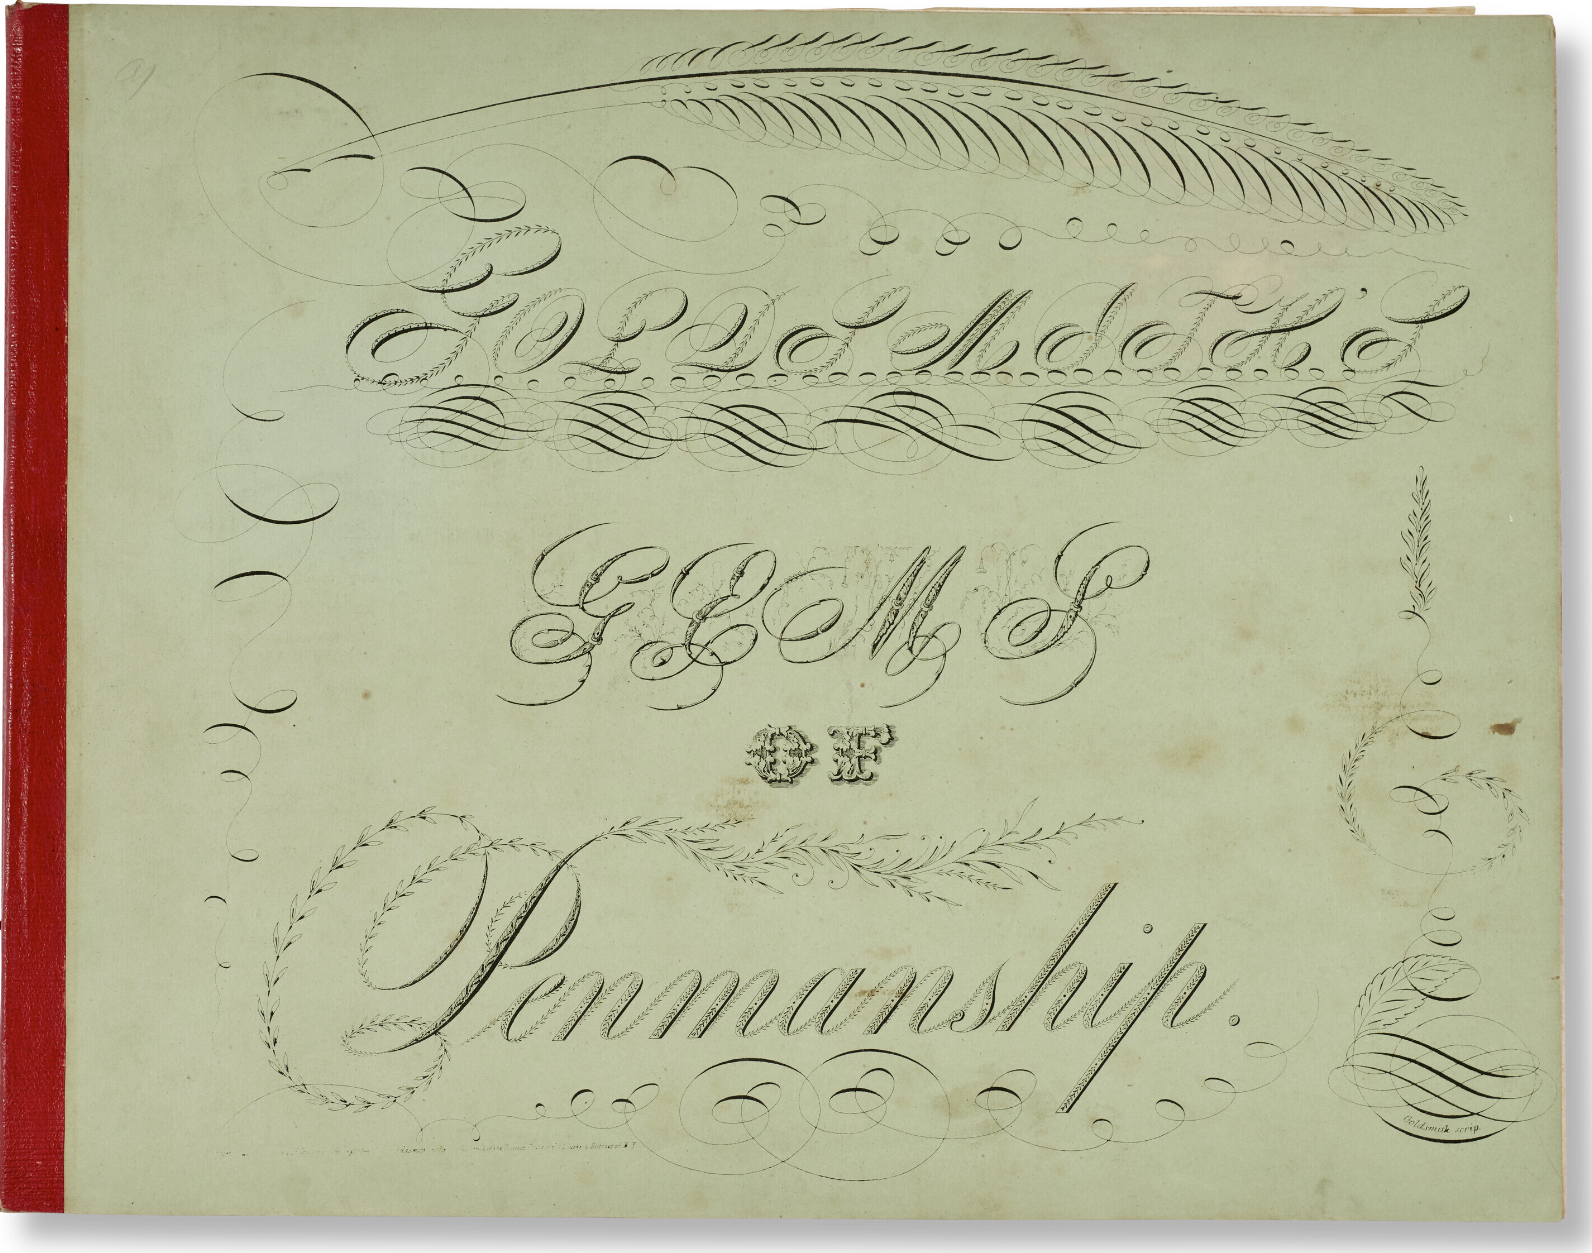 GOLDSMITH'S
GEMS
OF
Penmanship.
Goldsmith scrip.